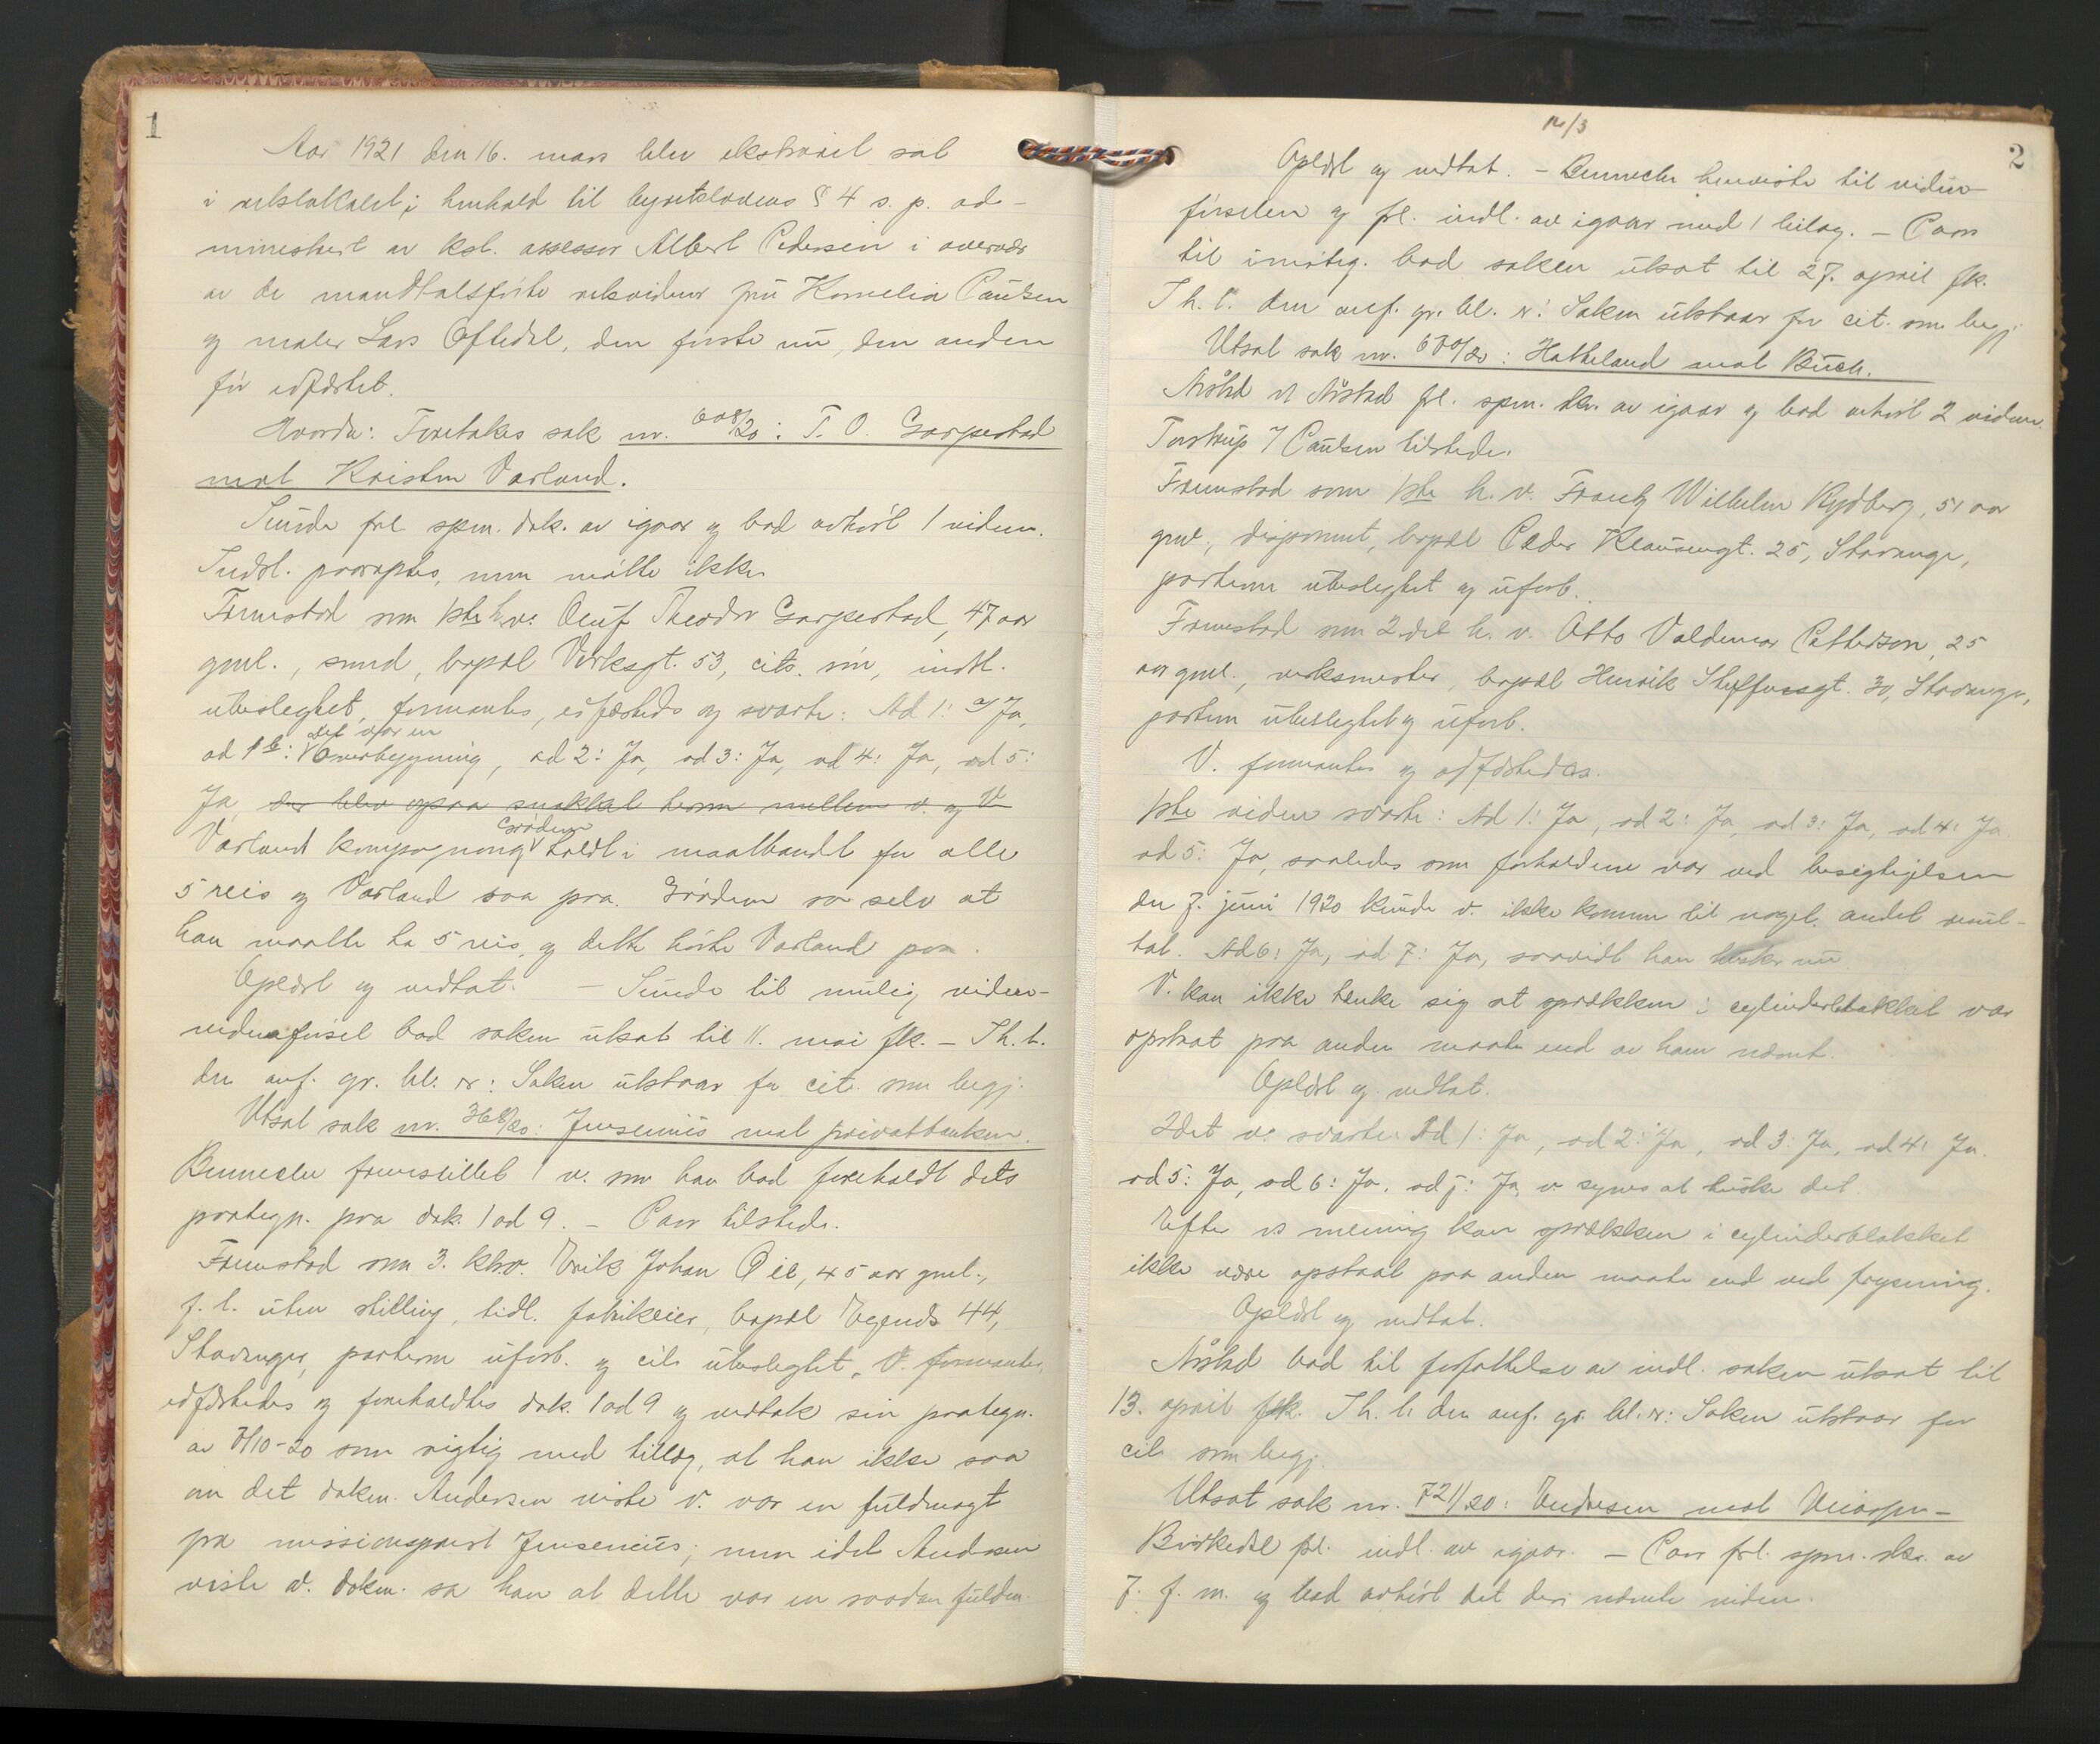 1
Aar 1921 den 16. mars blev ekstraret sat
i retslokalet i henhold til byretslovens § 4 s. p. ad-
ministrert av kst. assessor Albert Pedersen i overvær
av de mandtalsførte retsvidner fru Kornelia Paulsen
og maler Lars Oftedal, den første nu, den anden
før edfæstet.
Hvorda: Foretakes sak nr. 608/20: T. O. Garpestad
mot Kristen Varland.
Sunde frl. spm. dok. av igaar og bad avhørt 1 vidne.
Indst. paraptes, men møtte ikke.
Fremstod som 1ste h.v. Oluf Theodor Garpestad, 47 aar
gml., smed, bopæl Verksgt. 53, cits. søn, indst.
ubeslegtet, formantes, edfæstedes og svarte: Ad 1: a/ Ja,
ad 1 b: det var en Overbygning, ad 2: Ja, ad 3: Ja, ad 4: Ja, ad 5:
Ja, der blev ogsaa snakket herom mellem v. og V
Varlands kompagnong Grødem holdt i maalbandt for alle
5 reis og Varland saa paa. Grødem sa selv at
han maatte ta 5 reis, og dette hørte Varland paa.
Oplæst og vedtat. - Sunde til mulig viden-
vidneførsel bad saken utsat til 11. mai fk. - Th. t.
den anf. gr. bl. r: Saken utstaar for cit. som begj.
Utsat sak nr. 368/20: Jensenius mot privatbanken.
Bennecke fremstillet 1 v. som han bad foreholdt dets
paategn. paa dok. 1 ad 9. - Parr tilstede.
Fremstod som 3. kh.v. Erik Johan Qie, 45 aar gml.,
f. t. uten stilling, tidl. fabrikeier, bopæl Egends 44,
Stavanger, parterne uforb. og cits ubeslegtet. V. formantes,
edfæstedes og foreholdtes dok. 1 ad 9 og vedtok sin paategn.
av 8/10-20 som rigtig med tillæg, at han ikke saa
om det dokm. Andersen viste v. var en fuldmagt
fra missionsprest Jensenius; men idet Andersen
viste v. dokm. sa han at dette var en saadan fuldm.
16/3
2
Oplæst og vedtat. - Bennecke henviste til vidne-
førselen og frl. indl. av igaar med 1 bilag. - Parr
til imøteg. bad saken utsat til 27. april fk.
Th. t. den anf. gr. bl. r: Saken utstaar for cit. som begj.
Utsat sak nr. 680/20: Hatteland mot Buch.
Nåstad v/ Nåstad frl. spm. skr. av igaar og bad avhørt 2 vidner.
Torstrup v/ Paulsen tilstede.
Fremstod som 1ste h. v. Frantz Wilhelm Rydberg, 51 aar
gml., disponent, bopæl Peder Klausengt. 25, Stavanger,
parterne ubeslegtet og uforb.
Fremstod som 2.det h. v. Otto Valdemar Petterson, 25
aar gml., verksmester, bopæl Henrik Steffensgt. 30, Stavanger,
partern ubeslegtet og uforb.
V. formantes og edfæstedes.
1ste vidne svarte: Ad 1: Ja, ad 2: Ja, ad 3: Ja, ad 4: Ja.
ad 5: Ja, saaledes som forholdene var ved besigtigelsen
den 7. juni 1920 kunde v. ikke komme til noget andet resul-
tat. Ad 6: Ja, ad 7: Ja, saavidt han husker nu
V. kan ikke tenke sig at sprækken i cylinderblokket var
opstaat paa anden maate end av ham nævnt.
Oplæst og vedtat.
2det v. svarte: Ad 1: Ja, ad 2: Ja, ad 3: Ja, ad 4: Ja.
ad 5: Ja, ad 6: Ja. ad 7: Ja, v. synes at huske det.
Efter vs mening kan sprækken i cylinderblokket
ikke være opstaat paa anden maate end ved frysning.
Oplæst og vedtat.
Nåstad bad til forfattelse av indl. saken utsat til
13. april fk. Th. t. den anf. gr. bl. r: Saken utstaar for
cit. som begj.
Utsat sak nr. 721/20: Endresen mot
Birkedal frl. indl. av igaar. - Parr frl. spm. skr. av
7. f. m. og bad avhørt det deri nævnte vidne.